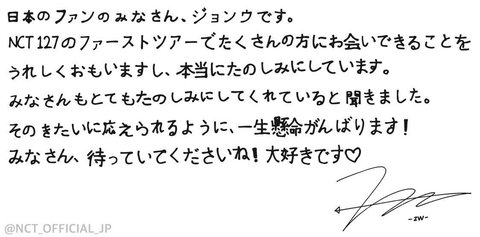 日本のファンのみなさん、ジョンウです。
NCT 127のファーストツアーでたくさんの方にお会いできることを
うれしくおもいますし、本当にたのしみにしています。
みなさんもとてもたのしみにしてくれていると聞きました。
そのきたいに応えられるように、一生懸命がんばります!
みなさん、待っていてくださいね!大好きです♡
-zw-
@NCT_OFFICIAL_JP